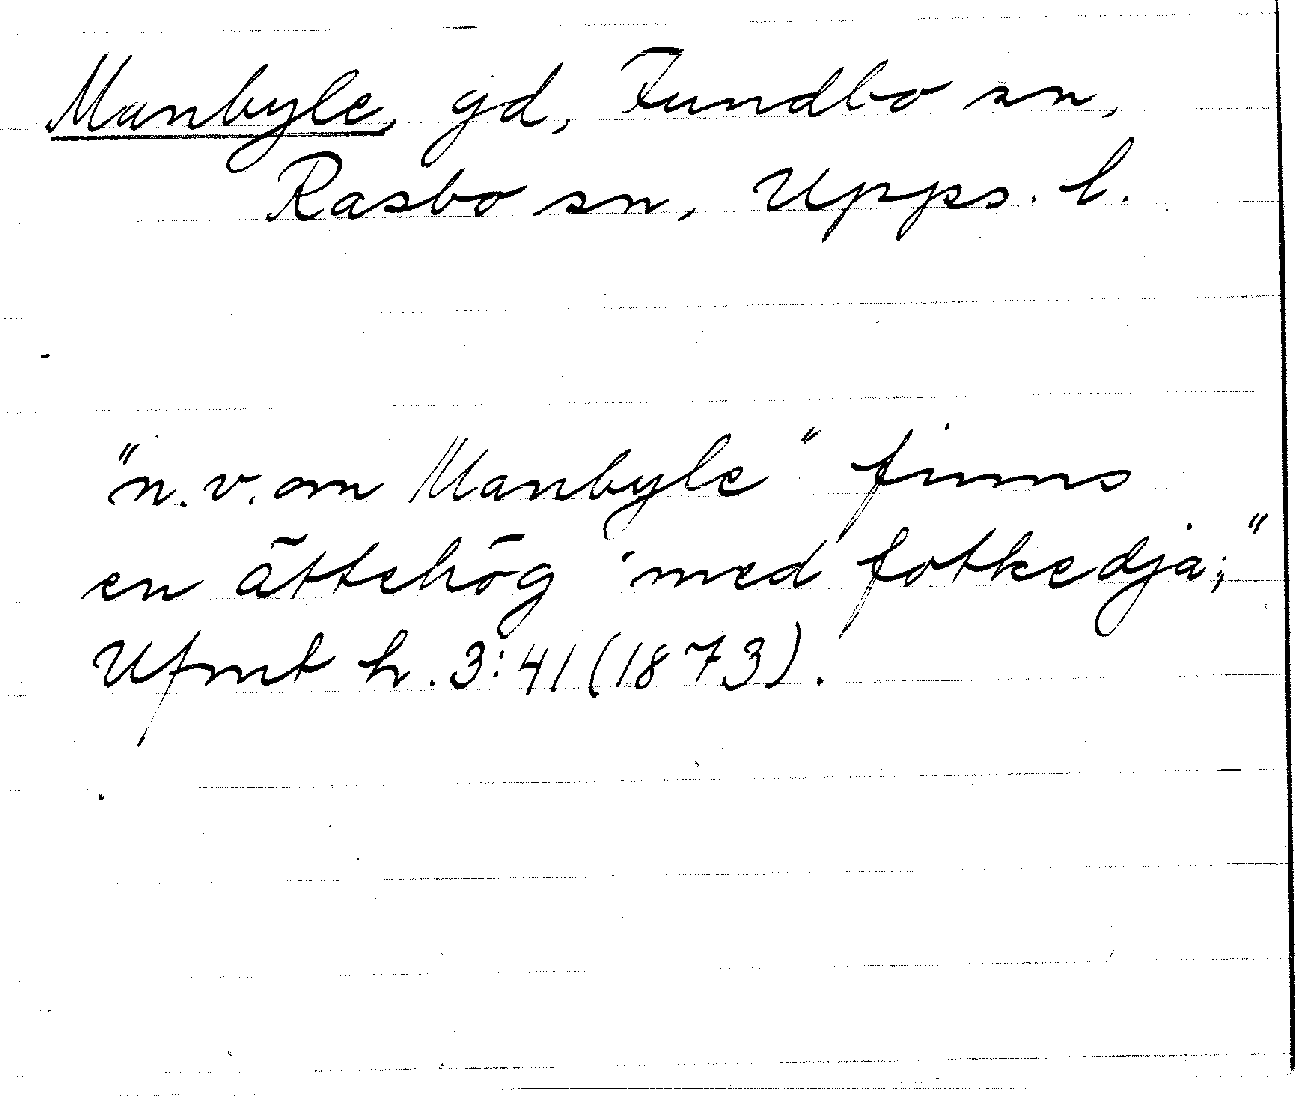 Manbyle, gd, Funbo sn,
Rasbo sn, Upps. l.
"n.v. om Manbyle" finns
en ättehög "med fotkedja;"
Ufmt h. 3:41 (1873).